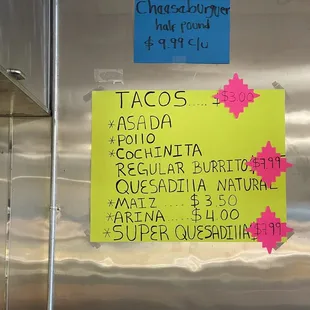 Chaasaburguer
half pound
$ 9.99 c/u
TACOS ..... $3.00
*ASADA
*POllO
*COCHINITA
REGULAR BURRITO $7.99
QUESADIllA NATURAL
*MAIZ .... $3.50
*ARINA ..... $4.00
*SUPER QUESADIllA $7.99